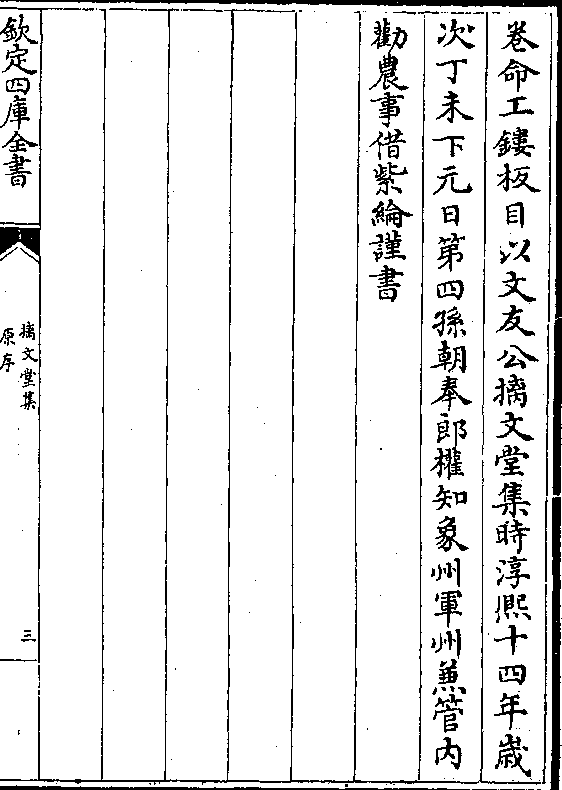 卷命工鏤板目以文友公摛文堂集時淳熈十四年歲
次丁未下元日第四孫朝奉郎權知象州軍州兼管內
勸農事借紫綸謹書
欽定四庫全書
摛文堂集
原序
三